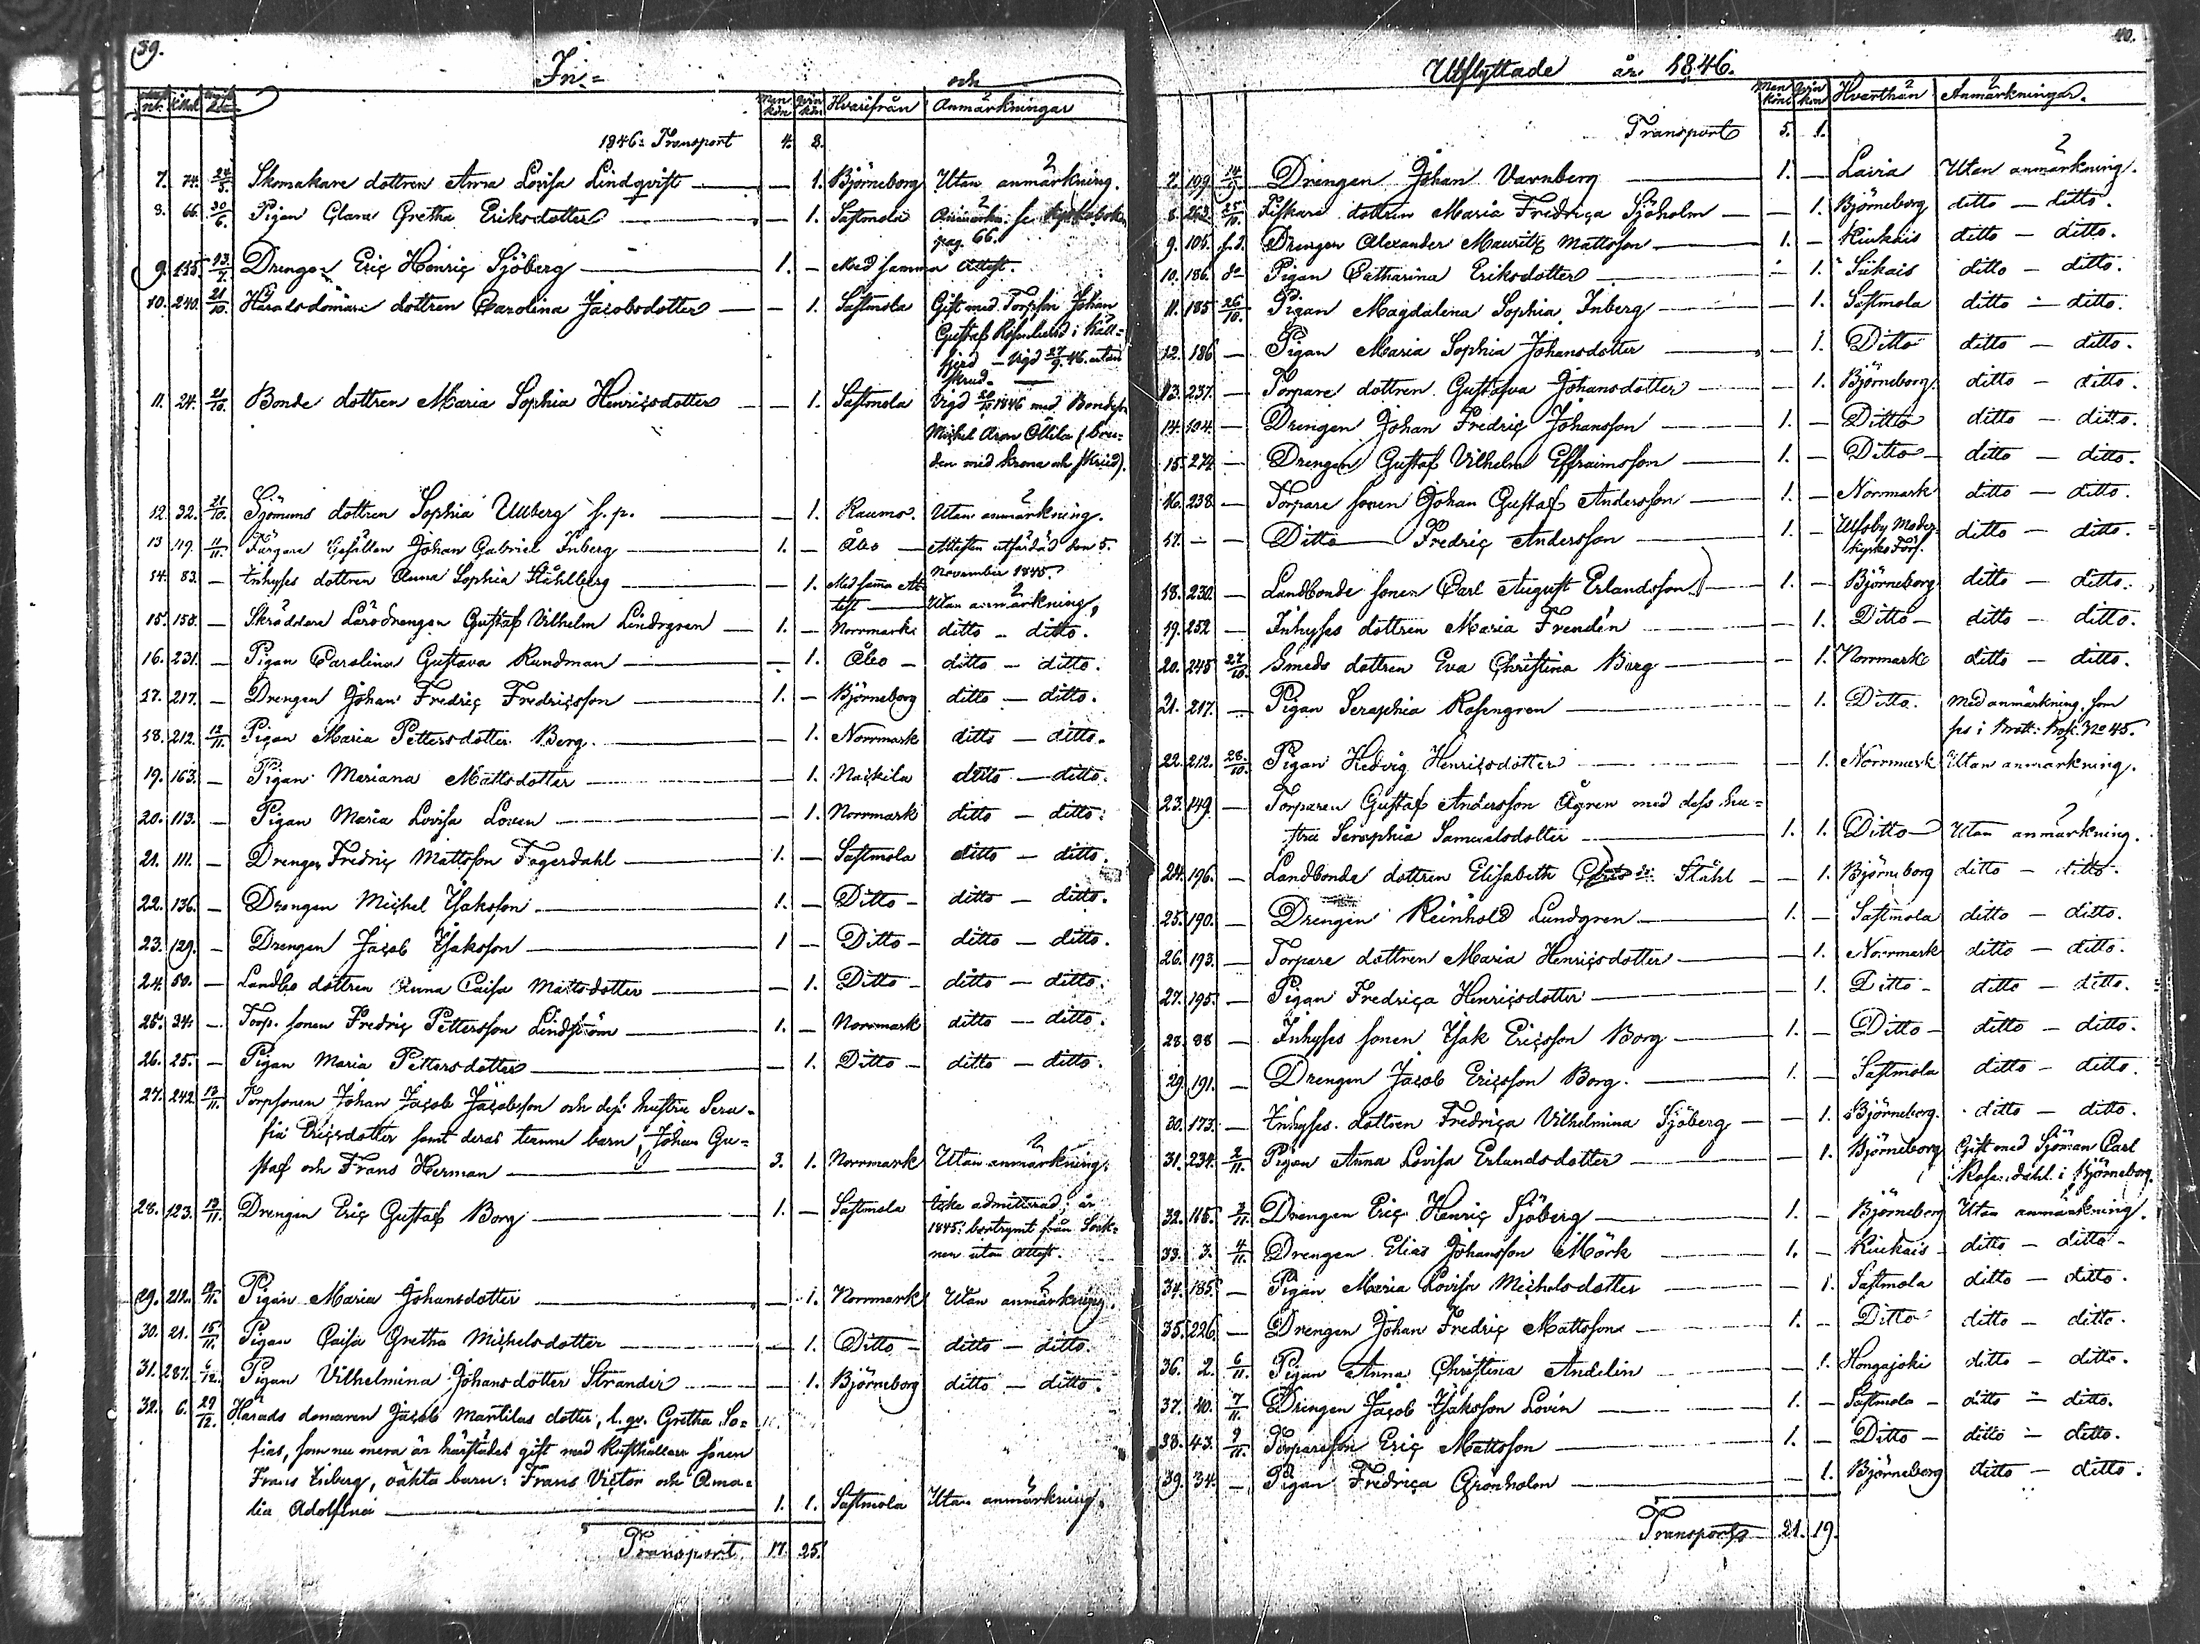 39.
In- och
Man kön Qvin kön Hvarifrån Anmärkningar
1846: Transport 4. 8.
7. 74. 24/5. Skomakare dottren Anna Lovisa Lindqvist — — 1. Björneborg Utan anmärkning.
8. 66. 30/6. Pigan Clara Gretha Eriksdotter — — 1. Sastmola Anmärkn: se kyrkoboken
pag. 66.
9. 155. Drengen Eric Henric Sjöberg — 1. — Med samma Attest.
10. 240. 21/10. Häradsdomare dottren Carolina Jacobsdotter — — 1. Sastmola Gift med Torpson Johan
Gustaf i Käll-
fjerd — Vigd 27/9. 46. utan
skrud. —
11. 24. 21/10. Bonde dottren Maria Sophia Henricsdotter — — 1. Sastmola Vigd 1846 med Bondeson
Michel Aron Ollila (bru-
den med krona och skrud).
12. 32. 21/10. Sjömans dottren Sophia Ullberg s. p. — — 1. Raumo. Utan anmärkning.
13 119. 11/11. Färgare Gesällen Johan Gabriel Inberg — 1. — Åbo — Attesten utfärdad den 5.
November 1845.
14. 83. — Inhyses dottren Anna Sophia Ståhlberg — — 1. Med samma At-
test — Utan anmärkning.
15. 158. — Skräddare Lärodrengen Gustaf Vilhelm Lindegren — 1. — Norrmark ditto — ditto.
16. 231. — Pigan Carolina Gustava Rundman — — 1. Åbo — ditto — ditto.
17. 217. — Drengen Johan Fredric Fredricsson — 1. — Björneborg ditto — ditto.
18. 212. 12/11. Pigan Maria Pettersdotter Berg. — — 1. Norrmark ditto — ditto.
19. 163. — Pigan Mariana Mattsdotter — — 1. Nackila ditto — ditto.
20. 113. — Pigan Maria Lovisa Loven — — 1. Norrmark ditto — ditto.
21. 111. — Drengen Fredric Mattsson Fagerdahl — 1. — Sastmola ditto — ditto.
22. 136. — Drengen Michel Isaksson — 1. — Ditto — ditto — ditto.
23. 129. — Drengen Jacob Isaksson — 1 — Ditto — ditto — ditto.
24. 50. — Landbo dottren Anna Caisa Mattsdotter — — 1. Ditto — ditto — ditto.
25. 34. — Torp. sonen Fredric Pettersson Lindström — 1. — Norrmark ditto — ditto.
26. 25. — Pigan Maria Pettersdotter — — 1. Ditto — ditto — ditto.
27. 242. 12/11. Torpsonen Johan Jacob Jacobsson och dess hustru Sera-
fia Ericsdotter samt deras tvenne barn, Johan Gu-
staf och Frans Herman — 3. 1. Norrmark Utan anmärkning.
28. 123. 12/11. Drengen Eric Gustaf Borg — 1. — Sastmola Icke admitterad; är
1845: bortrymt från Sock-
nen utan Attest.
29. 212. 12/11. Pigan Maria Johansdotter — — 1. Norrmark Utan anmärkning.
30. 21. 15/11. Pigan Caisa Gretha Michelsdotter — — 1. Ditto — ditto — ditto.
31. 287. 6/12. Pigan Vilhelmina Johansdotter Strander — — 1. Björneborg ditto — ditto.
32. 6. 29/12. Härads domaren Jacob Mårtilas dotter, l. qv. Gretha So-
fias, som nu mera är härstädes gift med Rusthållare sonen
Frans Inberg, oäkta barn: Frans Victor och Ama-
lia Adolfina — 1. 1. Sastmola Utan anmärkning.
Transport 17. 25.
40.
Utflyttade år 1846.
Man kön Qvin kön Hvarthän Anmärkningar.
Transport 5. 1.
7. 109. Drengen Johan Varnberg — 1. — Lavia Utan anmärkning.
8. 262. 25/10. Fiskare dottren Maria Fredrica Sjöholm — — 1. Björneborg ditto — ditto.
9. 105. s. d. Drengen Alexander Mauritz Mattsson — 1. — Kiukais ditto — ditto.
10. 186. do Pigan Catharina Eriksdotter — — 1. Siikais ditto — ditto.
11. 185 26/10. Pigan Magdalena Sophia Inberg — — 1. Sastmola ditto — ditto.
12. 186 — Pigan Maria Sophia Johansdotter — — 1. Ditto ditto — ditto.
13. 237. — Torpare dottren Gustafva Johansdotter — — 1. Björneborg ditto — ditto.
14. 104. — Drengen Johan Fredric Johansson — 1. — Ditto ditto — ditto.
15. 274 — Drengen Gustaf Vilhelm Effraimsson — 1. — Ditto — ditto — ditto.
16. 238. — Torpare sonen Johan Gustaf Andersson — 1. — Norrmark ditto — ditto.
17. — — Ditto — Fredric Andersson — 1. — Ulfsby Moder-
kyrko Förs. ditto — ditto.
18. 230. — Landbonde sonen Carl August Erlandsson — 1. — Björneborg ditto — ditto.
19. 252 — Inhyses dottren Maria Frendén — — 1. Ditto — ditto — ditto.
20. 248 27/10. Smeds dottren Eva Christina Berg — — 1. Norrmark ditto — ditto.
21. 217. — Pigan Seraphia Rosengren — — 1. Ditto. Med anmärkning, som
ses i No 45.
22. 212. 28/10. Pigan Hedvig Henricsdotter — — 1. Norrmark Utan anmärkning.
23. 149. — Torparen Gustaf Andersson Ågren med dess hu-
stru Seraphia Samuelsdotter — 1. 1. Ditto — Utan anmärkning.
24. 196. — Landbonde dottren Elisabeth Ståhl — — 1. Björneborg ditto — ditto.
25. 190. — Drengen Reinhold Lundgren — 1. — Sastmola ditto — ditto.
26. 193. — Torpare dottren Maria Henricsdotter — — 1. Norrmark ditto — ditto.
27. 195. — Pigan Fredrica Henricsdotter — — 1. Ditto — ditto — ditto.
28. 88 — Inhyses sonen Isak Ericsson Borg — 1. — Ditto — ditto — ditto.
29. 191. — Drengen Jacob Ericsson Borg. — 1. — Sastmola ditto — ditto.
30. 173. — Inhyses dottren Fredrica Vilhelmina Sjöberg — — 1. Björneborg. ditto — ditto.
31. 234. 2/11. Pigan Anna Lovisa Erlandsdotter — — 1. Björneborg Gift med Sjöman Carl
Rosendahl i Björneborg.
32. 115. 3/11. Drengen Eric Henric Sjöberg — 1. — Björneborg Utan anmärkning.
33. 3. 4/11. Drengen Elias Johansson Mörk — 1. — Kiukais — ditto — ditto.
34. 185. — Pigan Maria Lovisa Michelsdotter — — 1. Sastmola ditto — ditto.
35. 226. — Drengen Johan Fredric Mattsson — 1. — Ditto ditto — ditto.
36. 2. 6/11. Pigan Anna Christina Andelin — — 1. Hongajoki ditto — ditto.
37. 40. 7/11. Drengen Jacob Isaksson Lovén — 1. — Sastmola — ditto — ditto.
38. 43. 9/11. Torpareson Eric Mattsson — 1. — Ditto — ditto — ditto.
39. 34. — Pigan Fredrica Grönholm — — 1. Björneborg ditto — ditto.
Transport 21. 19.